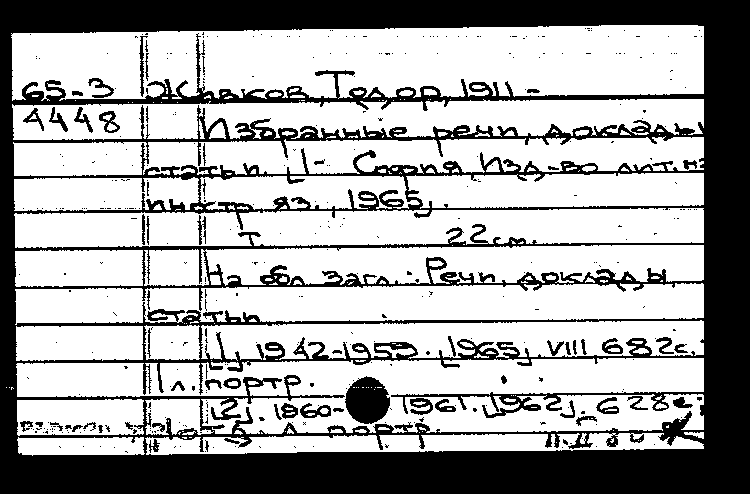 65-3 Живков, Тодор, 1911-
4448 Избранные речи, доклады
статьи. [1- София, Изд-во лит. на
иностр. яз., 1965].
т. 22 см.
На обл. загл.: Речи, доклады,
статьи
[1]. 1942-1959. [1965]. VIII, 682 с.;
1 л. портр.
[2]. 1960-1961. [1962]. 628 с.;
л. портр.